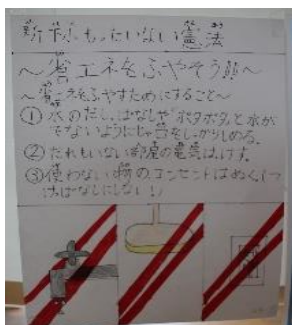 新ポもったいない憲法
〜省エネをふやそう!!〜
〜省エネをふやすためにすること〜
①水のだしっぱなしや"ポタポタ"と水が
でないようにじゃ口をしっかりしめる。
②だれもいない部屋の電気は、けす。
③使わない物のコンセントはぬく(つ
けっぱなしにしない!)